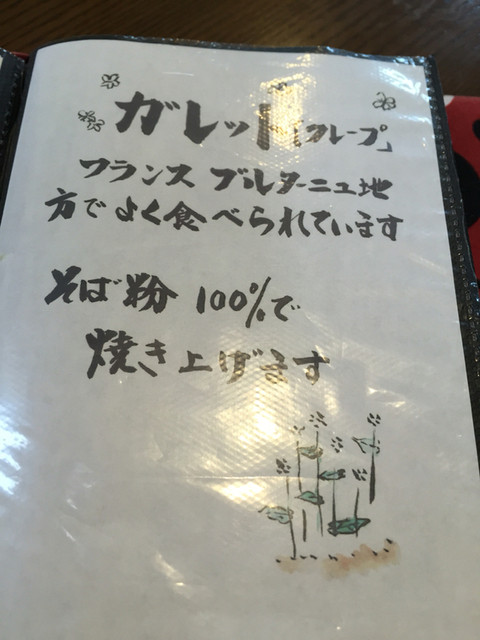 ガレット「クレープ」
フランス ブルターニュ地
方でよく食べられています
そば粉 100%で
焼き上げます